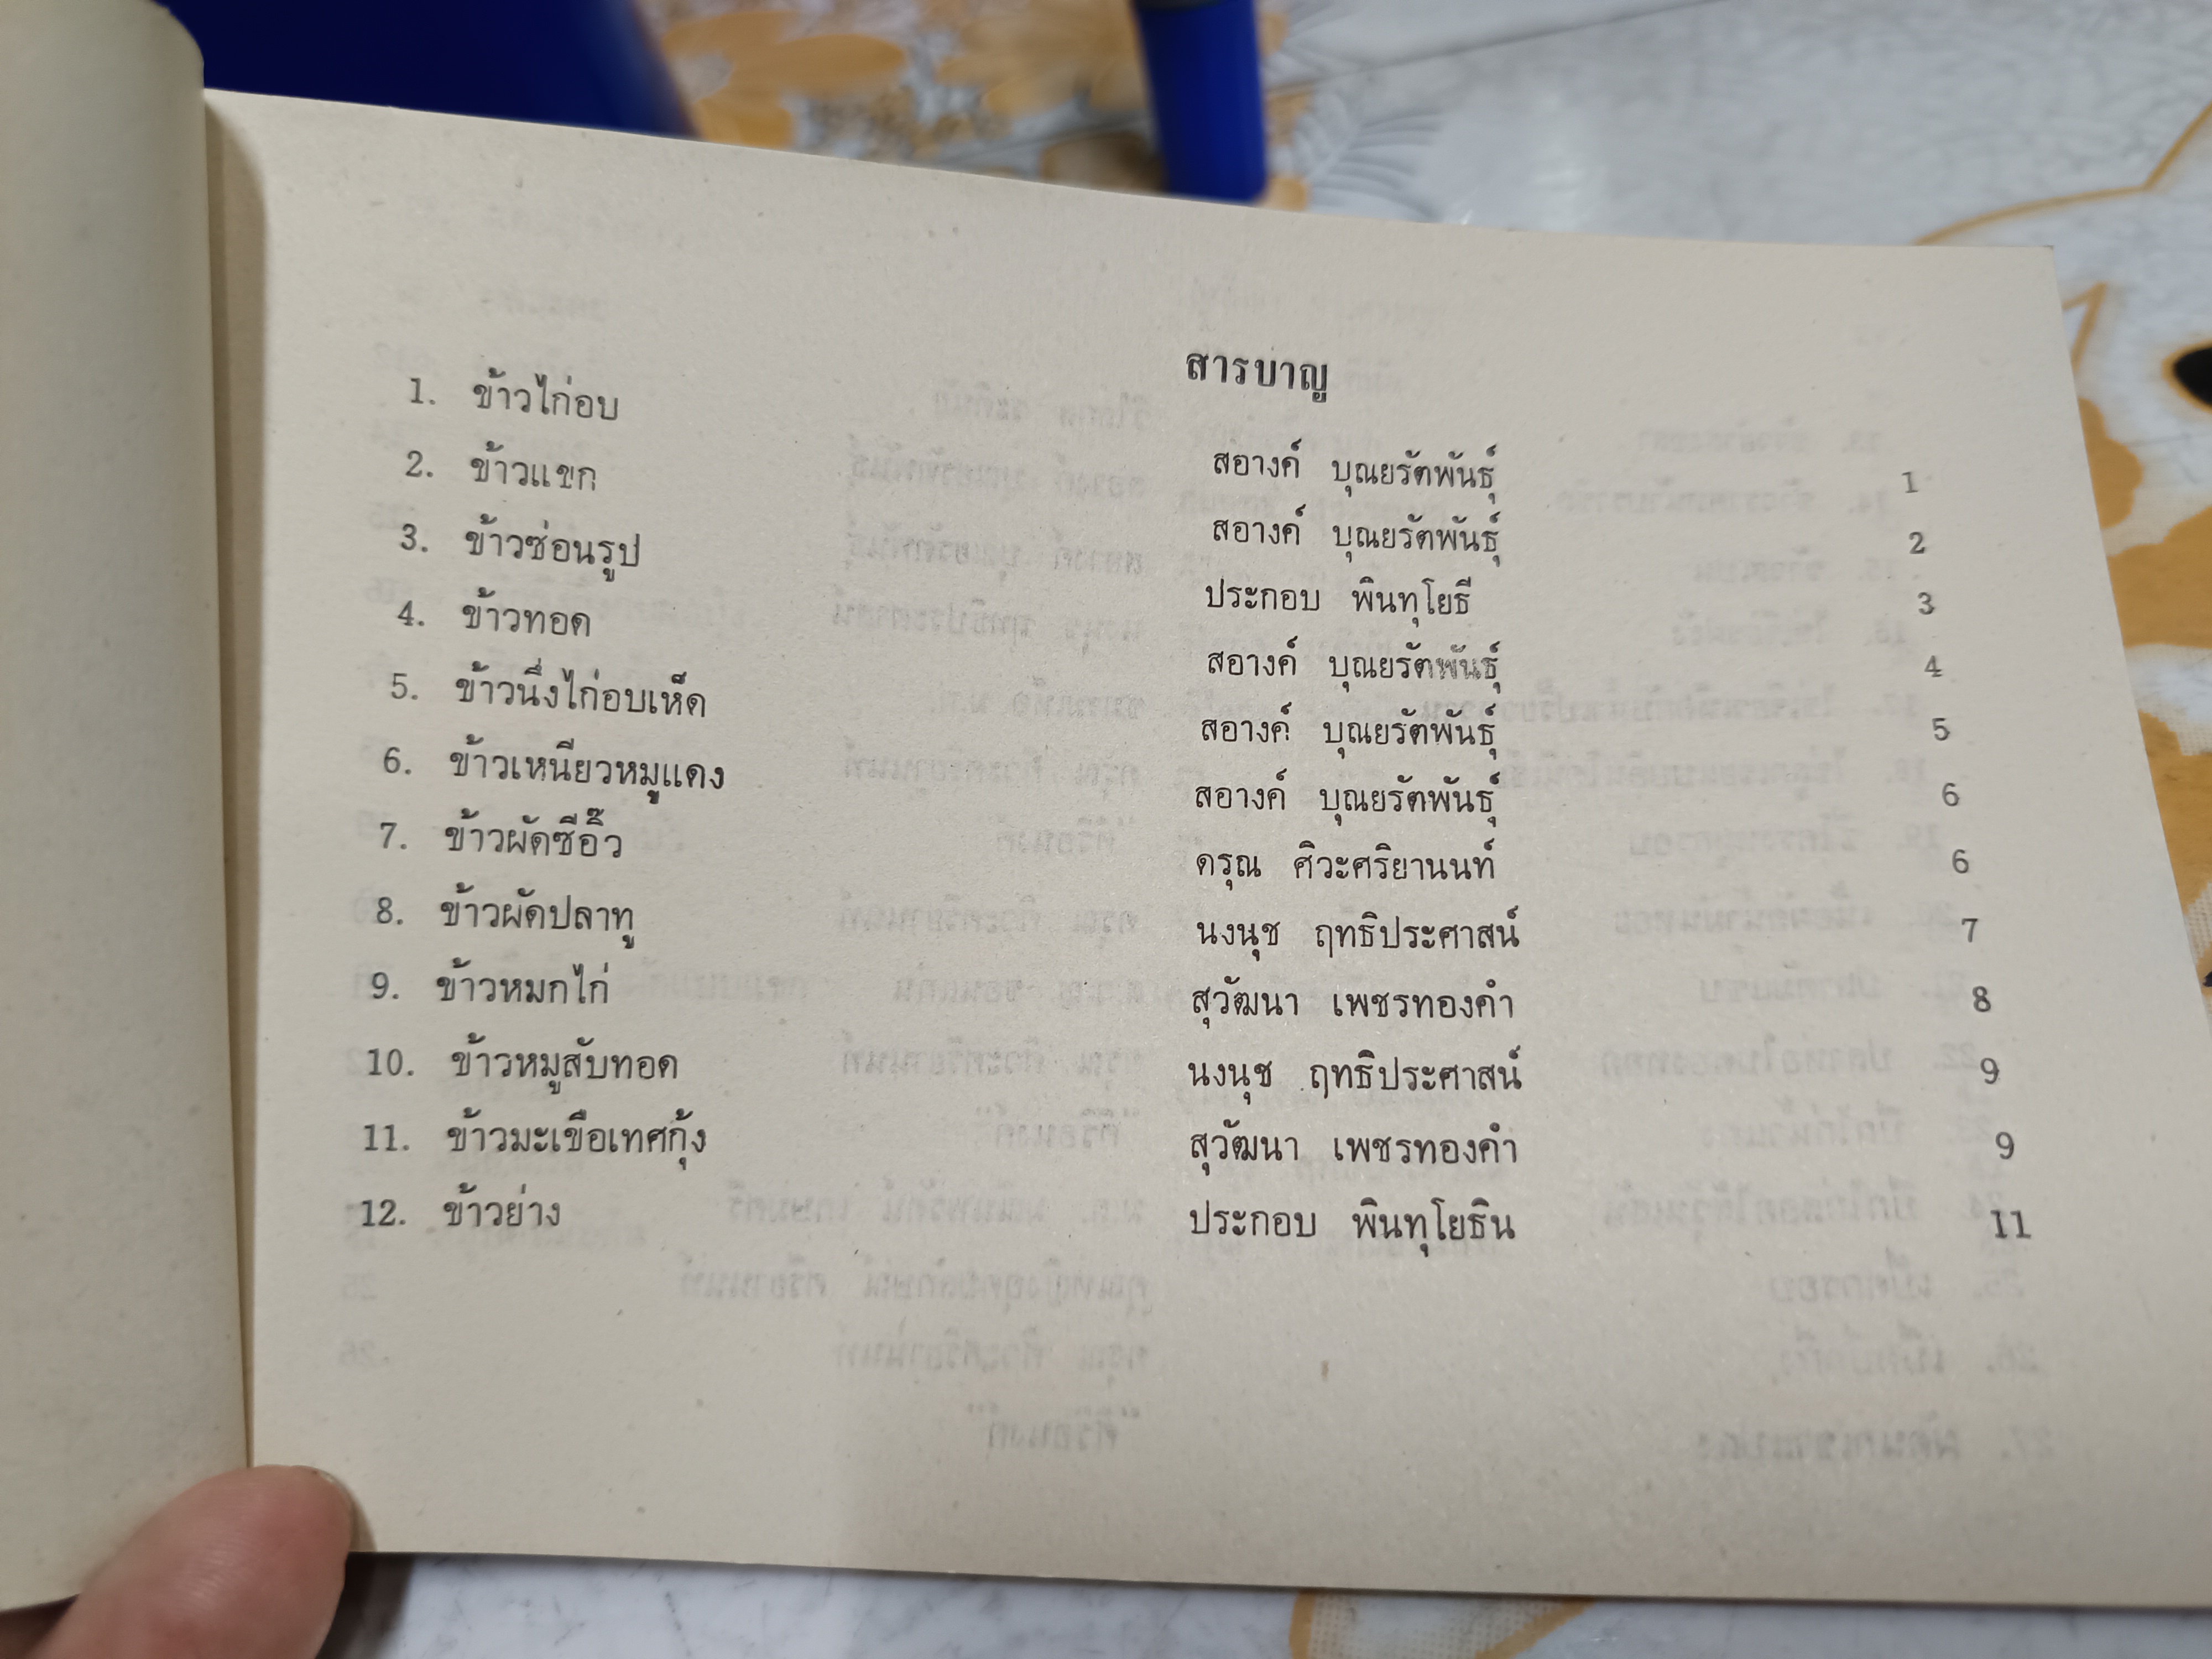 สารบาญ
1. ข้าวไก่อบ สอางค์ บุณยรัตพันธุ์ 1
2. ข้าวแขก สอางค์ บุณยรัตพันธุ์ 2
3. ข้าวซ่อนรูป ประกอบ พินทุโยธี 3
4. ข้าวทอด สอางค์ บุณยรัตพันธุ์ 4
5. ข้าวนึ่งไก่อบเห็ด สอางค์ บุณยรัตพันธุ์ 5
6. ข้าวเหนียวหมูแดง สอางค์ บุณยรัตพันธุ์ 6
7. ข้าวผัดซีอิ๊ว ดรุณ ศิวะศริยานนท์ 6
8. ข้าวผัดปลาทู นงนุช ฤทธิประศาสน์ 7
9. ข้าวหมกไก่ สุวัฒนา เพชรทองคำ 8
10. ข้าวหมูสับทอด นงนุช ฤทธิประศาสน์ 9
11. ข้าวมะเขือเทศกุ้ง สุวัฒนา เพชรทองคำ 9
12. ข้าวย่าง ประกอบ พินทุโยธิน 11